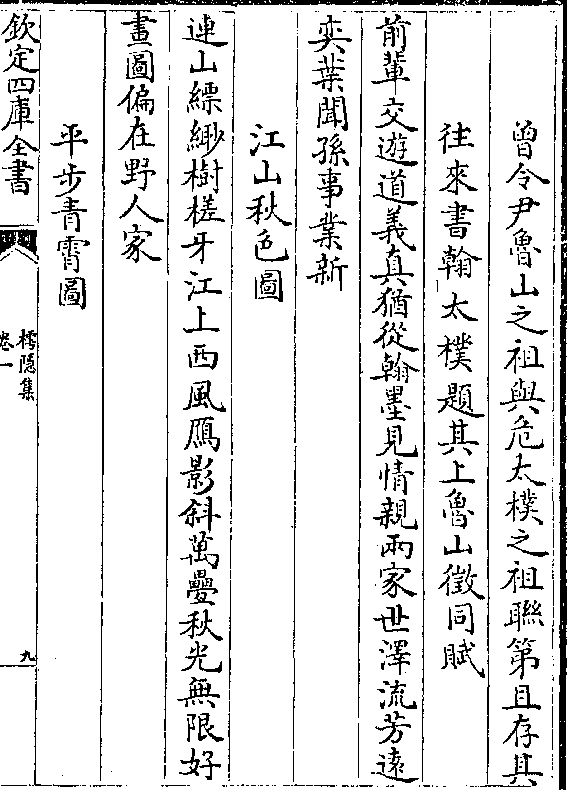 曾令尹魯山之祖與危太樸之祖聯第且存其
往來書翰太樸題其上魯山徵同賦
前輩交遊道義真猶從翰墨見情親兩家世澤流芳遠
奕葉聞孫事業新
江山秋色圖
連山縹緲樹槎牙江上西風鴈影斜萬疊秋光無限好
畫圖偏在野人家
平步青霄圖
欽定四庫全書
樗隱集
卷一
九